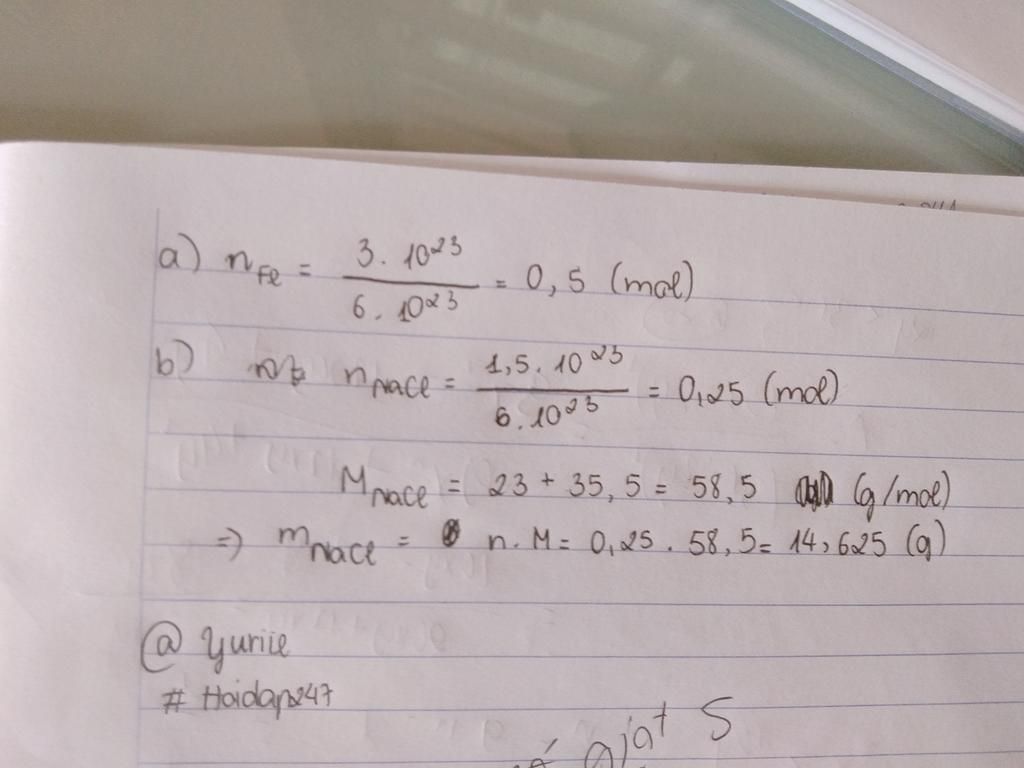 a) n_Fe = \frac{3 . 10^{23}}{6 . 10^{23}} = 0,5 (mol)
b) n_NaCl = \frac{1,5 . 10^{23}}{6 . 10^{23}} = 0,25 (mol)
M_NaCl = 23 + 35,5 = 58,5 (g/mol)
=> m_NaCl = n . M = 0,25 . 58,5 = 14,625 (g)
@ Yuriie
# Hoidap247
S